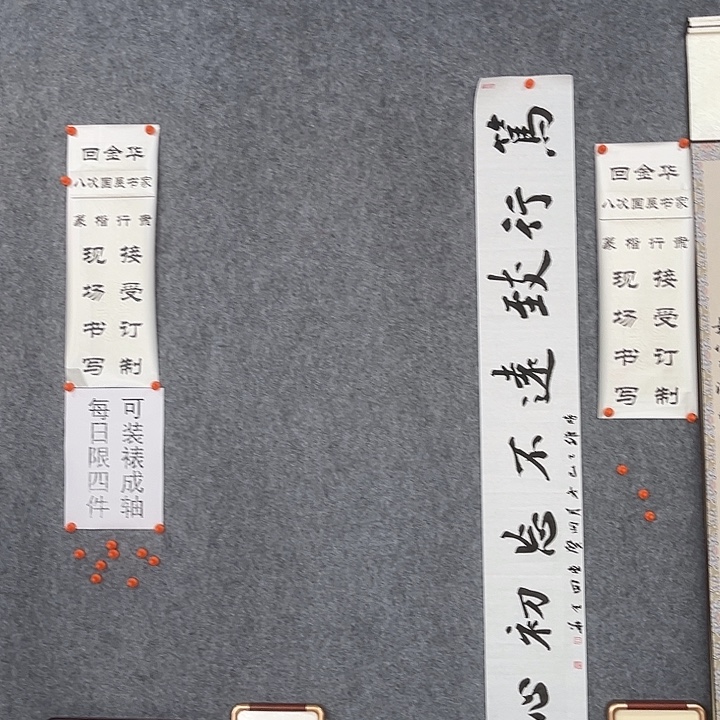 回金华
八次国展书家
篆楷行
接受订制
现场书写
可装裱成轴
每日限四件
篤行致遠不忘初心
回金华
八次国展书家
篆楷行
接受订制
现场书写